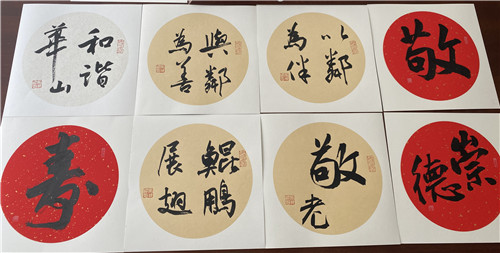 和谐
華山
與鄰
為善
以鄰
為伴
敬
寿
鯤鵬
展翅
敬
老
崇
德